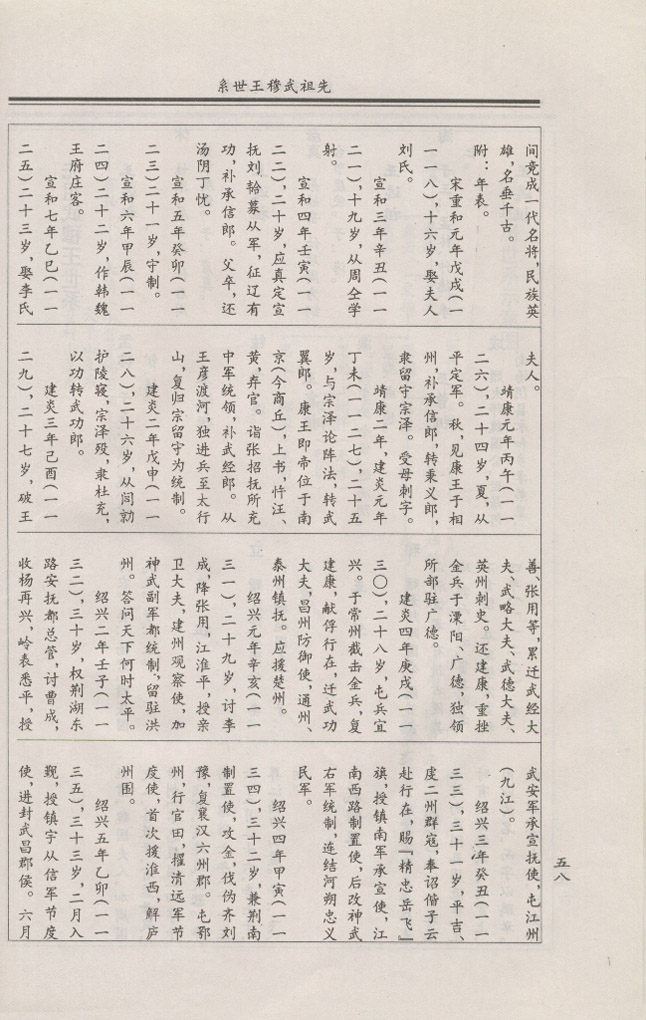 先祖武穆王世系
间竟成一代名将,民族英
雄,名垂千古。
附:年表。
宋重和元年戊戌(一
一一八),十六岁,娶夫人
刘氏。
宣和三年辛丑(一一
二一),十九岁,从周仝学
射。
宣和四年壬寅(一一
二二),二十岁,应真定宣
抚刘韐募从军,征辽有
功,补承信郎。父卒,还
汤阴丁忧。
宣和五年癸卯(一一
二三)二十一岁,守制。
宣和六年甲辰(一一
二四)二十二岁,作韩魏
王府庄客。
宣和七年乙巳(一一
二五)二十三岁,娶李氏
夫人。
靖康元年丙午(一一
二六),二十四岁,夏,从
平定军。秋,见康王于相
州,补承信郎,转秉义郎,
隶留守宗泽。受母刺字。
靖康二年,建炎元年
丁未(一一二七),二十五
岁,与宗泽论阵法,转武
翼郎。康王即帝位于南
京(今商丘),上书,忤汪、
黄,弃官。诣张招抚所充
中军统领,补武经郎。从
王彦渡河,独进兵至太行
山,复归宗留守为统制。
建炎二年戊申(一一
二八),二十六岁,从闾勍
护陵寝,宗泽殁,隶杜充,
以功转武功郎。
建炎三年己酉(一一
二九),二十七岁,破王
善、张用等,累迁武经大
夫、武略大夫、武德大夫、
英州刺史。还建康,重挫
金兵于溧阳、广德,独领
所部驻广德。
建炎四年庚戌(一一
三〇),二十八岁,屯兵宜
兴。于常州截击金兵,复
建康,献俘行在,迁武功
大夫,昌州防御使,通州、
泰州镇抚。应援楚州。
绍兴元年辛亥(一一
三一),二十九岁,讨李
成,降张用,江淮平,授亲
卫大夫,建州观察使,加
神武副军都统制,留驻洪
州。答问天下何时太平。
绍兴二年壬子(一一
三二),三十岁,权荆湖东
路安抚都总管,讨曹成,
收杨再兴,岭表悉平,授
武安军承宣抚使,屯江州
(九江)。
绍兴三年癸丑(一一
三三),三十一岁,平吉、
虔二州群寇,奉诏偕子云
赴行在,赐『精忠岳飞』
旗,授镇南军承宣使,江
南西路制置使,后改神武
右军统制,连结河朔忠义
民军。
绍兴四年甲寅(一一
三四),三十二岁,兼荆南
制置使,攻金,伐伪齐刘
豫,复襄汉六州郡。屯鄂
州,行官田,擢清远军节
度使,首次援淮西,解庐
州围。
绍兴五年乙卯(一一
三五),三十三岁,二月入
觐,授镇宇从信军节度
使,进封武昌郡侯。六月
五八